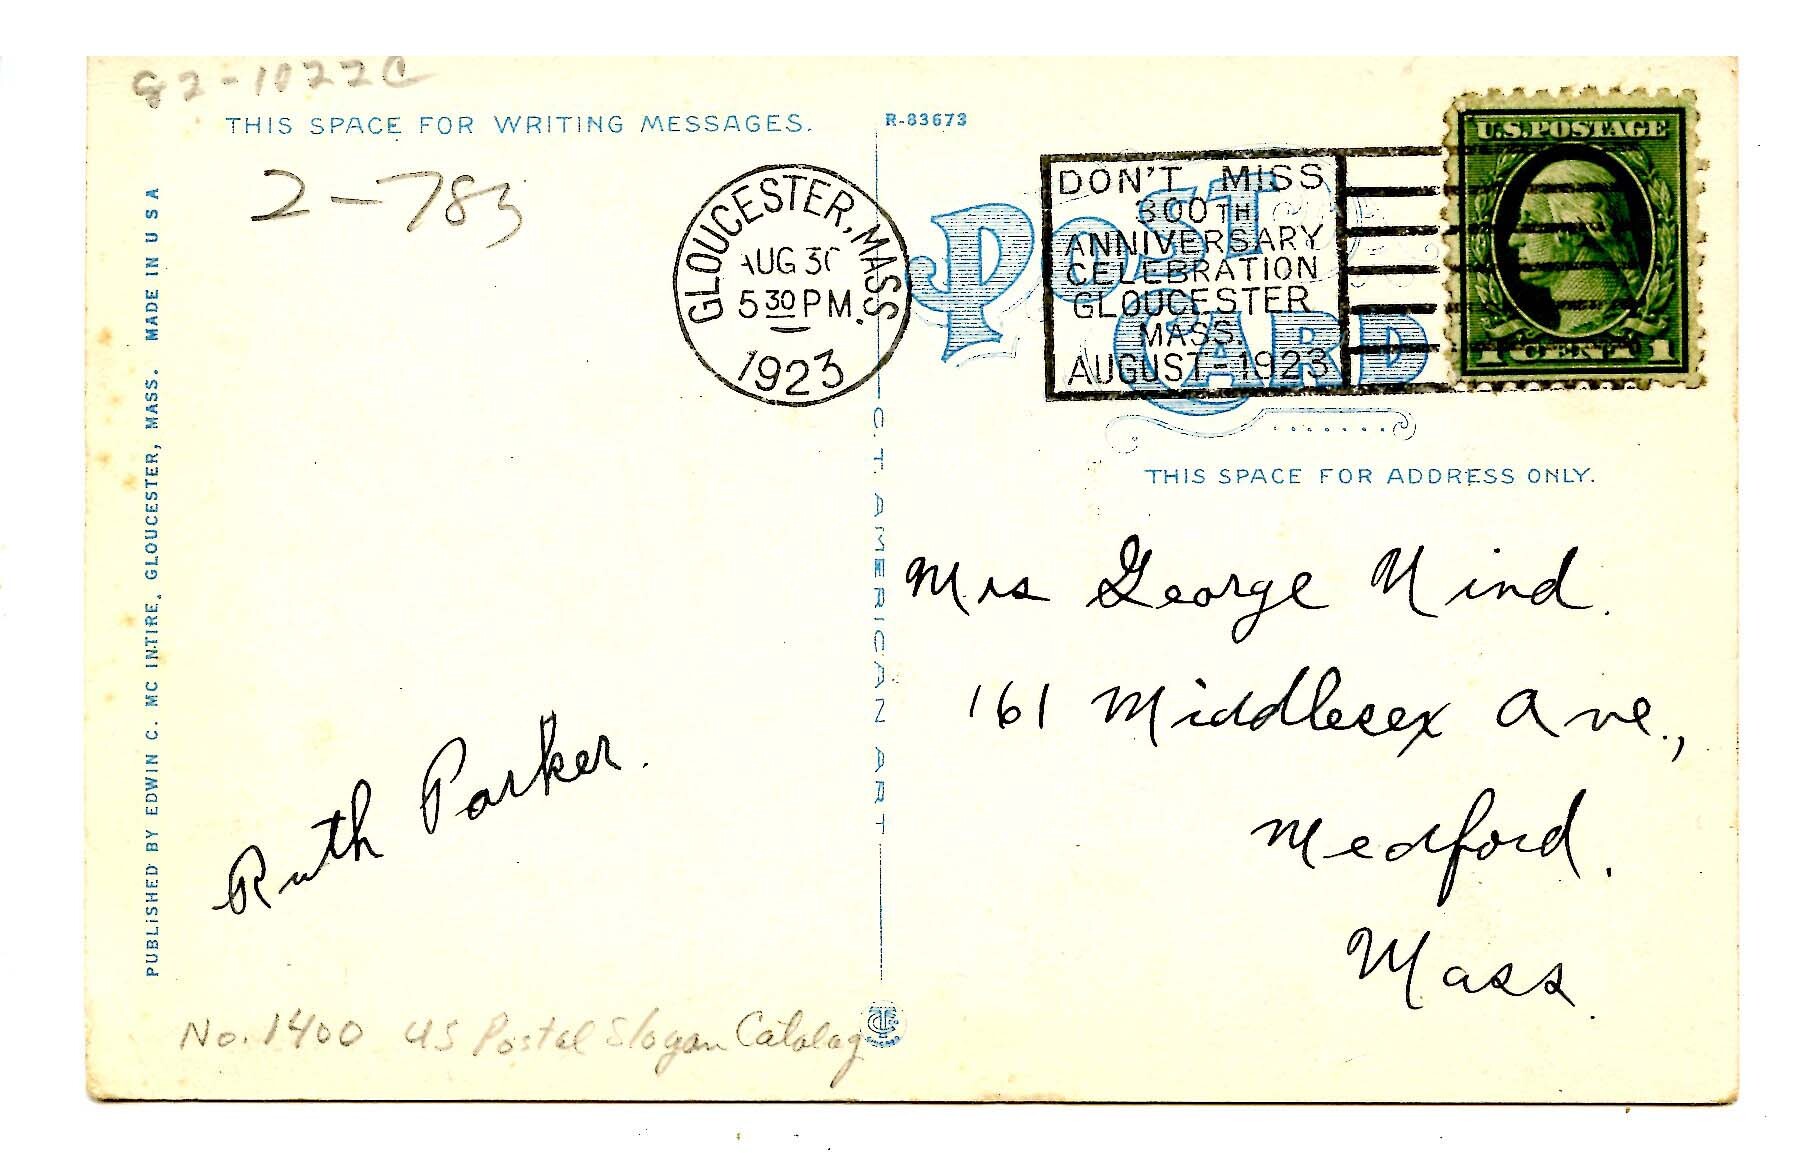 THIS SPACE FOR WRITING MESSAGES.
R-83673
2-783
GLOUCESTER, MASS.
AUG 30
5 30 PM.
1923
DON'T MISS
300TH
ANNIVERSARY
CELEBRATION
GLOUCESTER
MASS.
AUGUST-1923
U.S. POSTAGE
1 CENT 1
POST
CARD
THIS SPACE FOR ADDRESS ONLY.
PUBLISHED BY EDWIN C. MC INTIRE, GLOUCESTER, MASS. MADE IN U S A
C. T. AMERICAN ART
Mrs George Nind.
161 Middlesex Ave.,
Medford.
Mass.
Ruth Parker.
No. 1400 US Postal Slogan Catalog